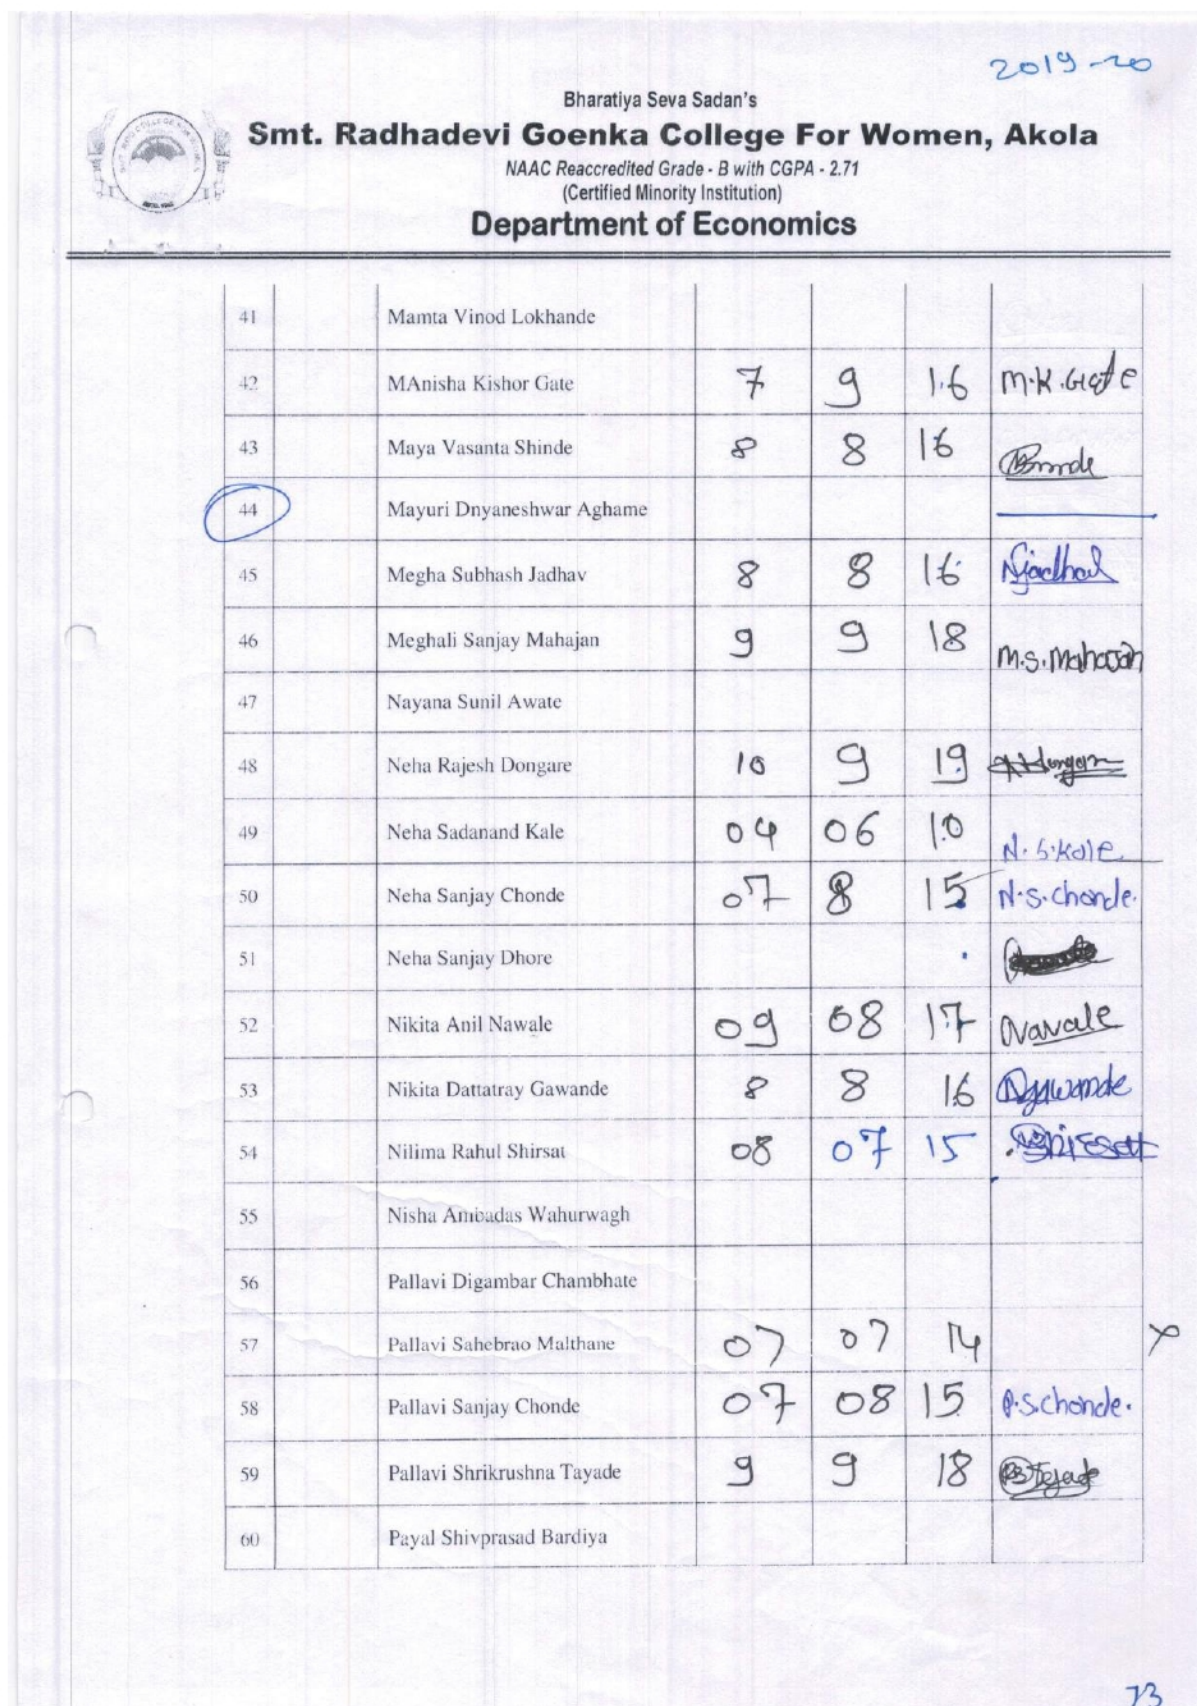 2019-20
Bharatiya Seva Sadan's
Smt. Radhadevi Goenka College For Women, Akola
NAAC Reaccredited Grade - B with CGPA - 2.71
(Certified Minority Institution)
Department of Economics
41 Mamta Vinod Lokhande
42 MAnisha Kishor Gate 7 9 16 M.K.Gate
43 Maya Vasanta Shinde 8 8 16
44 Mayuri Dnyaneshwar Aghame
45 Megha Subhash Jadhav 8 8 16
46 Meghali Sanjay Mahajan 9 9 18 M.S.Mahajan
47 Nayana Sunil Awate
48 Neha Rajesh Dongare 10 9 19
49 Neha Sadanand Kale 04 06 10 N.S.Kale
50 Neha Sanjay Chonde 07 8 15 N.S.Chonde.
51 Neha Sanjay Dhore
52 Nikita Anil Nawale 09 08 17 Navale
53 Nikita Dattatray Gawande 8 8 16
54 Nilima Rahul Shirsat 08 07 15
55 Nisha Ambadas Wahurwagh
56 Pallavi Digambar Chambhate
57 Pallavi Sahebrao Malthane 07 07 14 x
58 Pallavi Sanjay Chonde 07 08 15 P.S.Chonde.
59 Pallavi Shrikrushna Tayade 9 9 18
60 Payal Shivprasad Bardiya
73